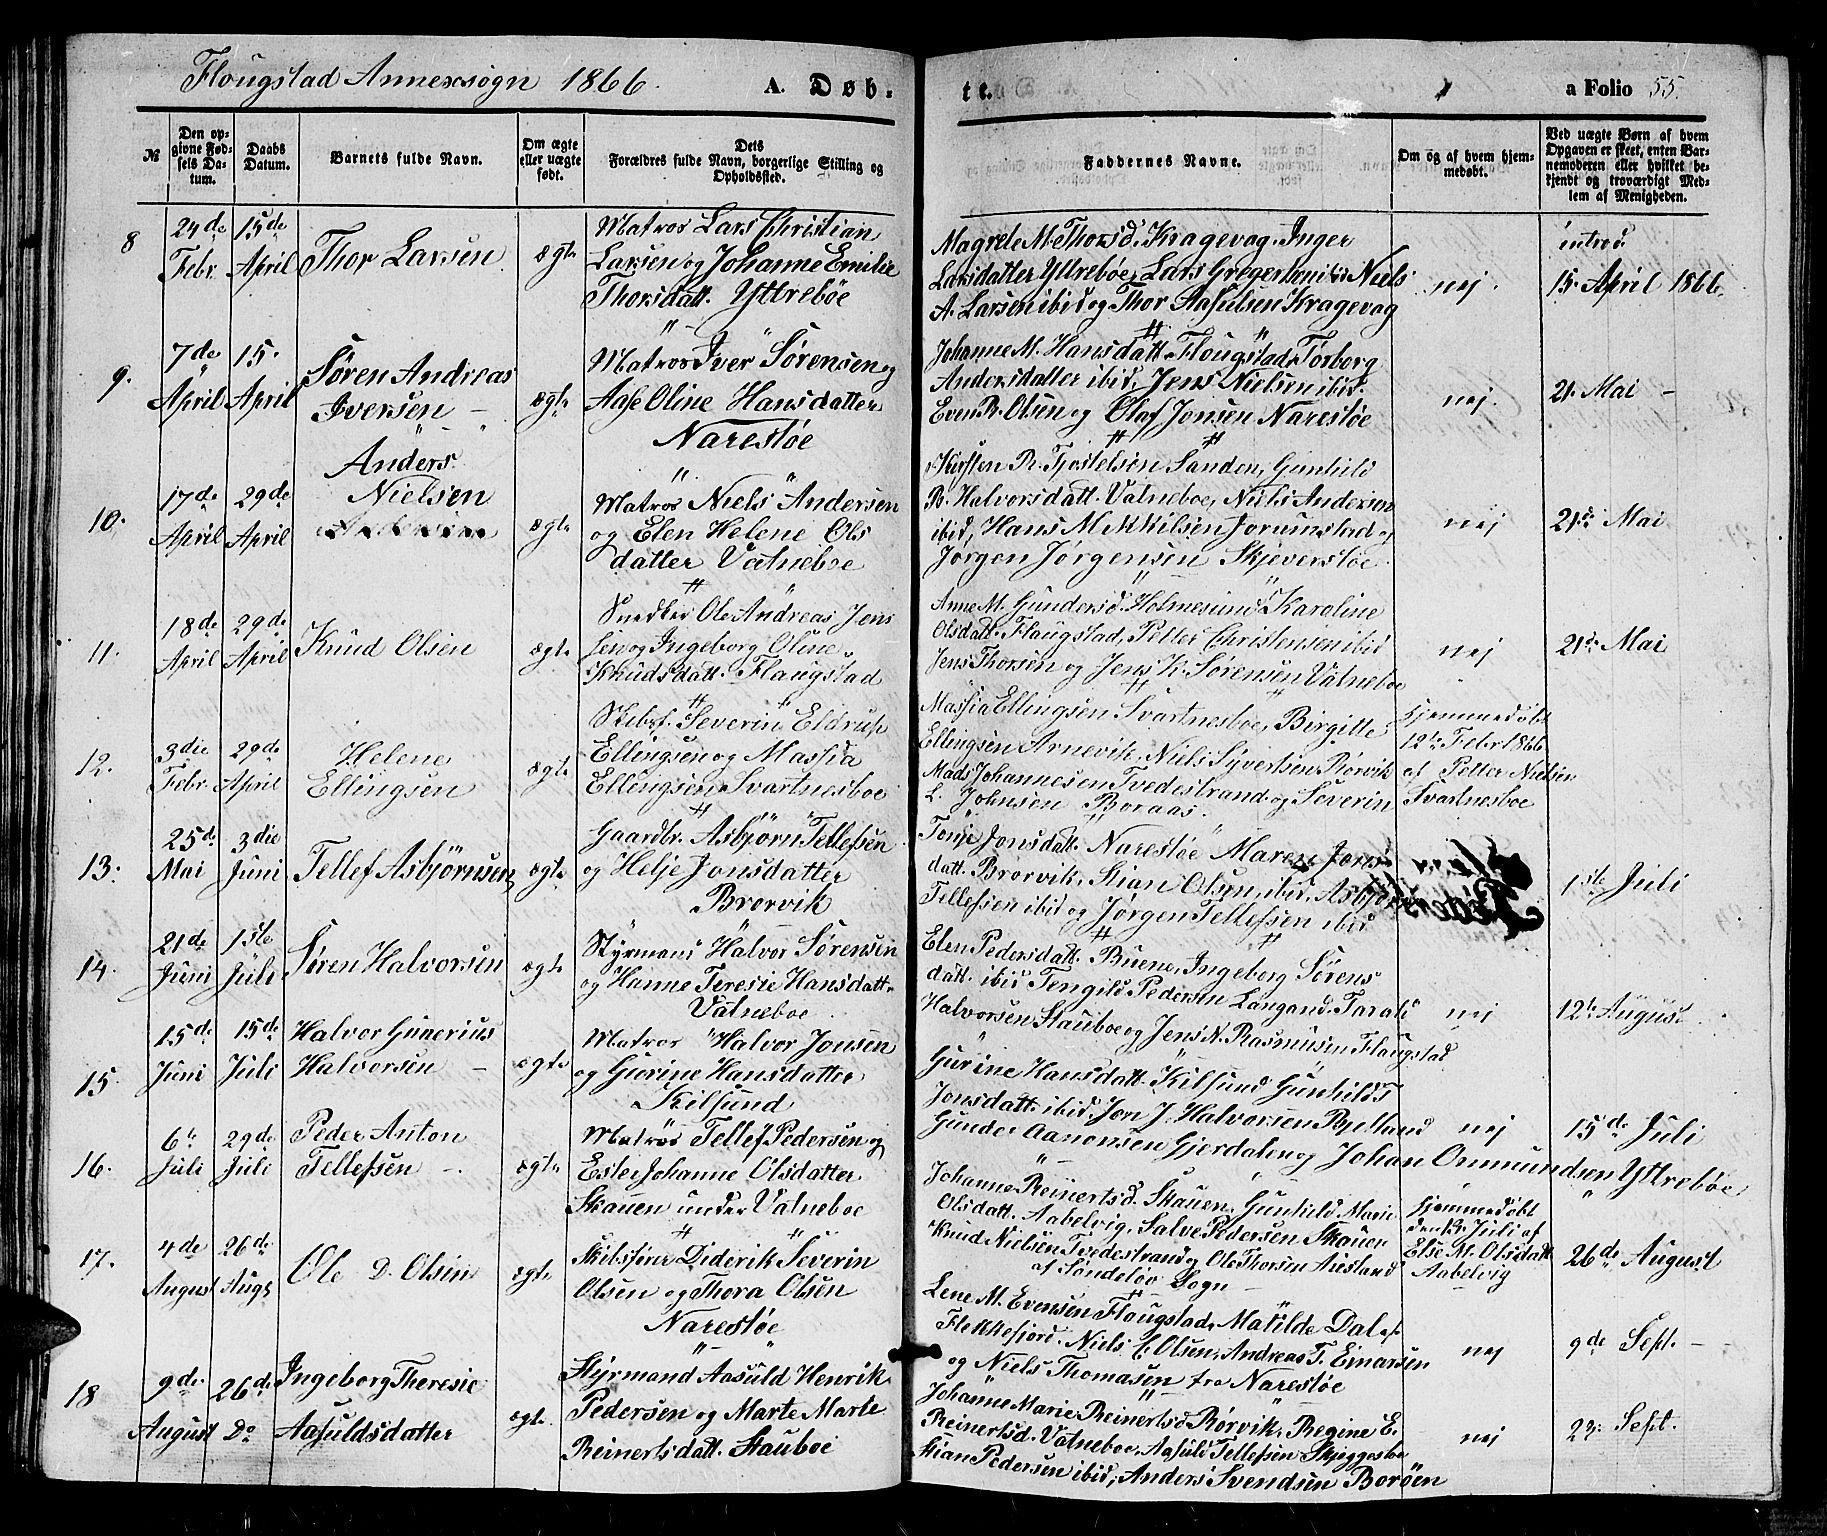 Flougstad Annexsogn 1866.
A. Døb-
te.
a Folio 55.
№
Den op-
givne Fød-
sels Da-
tum.
Daabs
Datum.
Barnets fulde Navn.
Om ægte
eller uægte
født.
Dets
Forældres fulde Navn, borgerlige Stilling og
Opholdssted.
Faddernes Navne.
Om og af hvem hjem-
medøbt.
Ved uægte Børn af hvem
Opgaven er skeet, enten Bar-
nemoderen eller hvilket be-
kjendt og troværdigt Med-
lem af Menigheden.
8
24de
Febr.
15de
April
Thor Larsen
ægte
Matros Lars Christian
Larsen og Johanne Emilie
Thorsdatt. Yttrebøe
Magrete M. Thorsd. Kragevag. Inger
Larsdatter Yttrebøe, Lars Gregersen ibid Niels
A. Larsen ibid og Thor Aasulsen Kragevag
nej.
introd.
15. April 1866.
9.
7de
April
15.
April
Søren Andreas
Iversen -
ægte
Matros Iver Sørensen og
Aase Oline Hansdatter
Narestøe
Johanne M. Hansdatt. Flougstad, Torborg
Andersdatter ibid, Jens Nielsen ibid.
Even R. Olsen og Olaf Jonsen Narestøe
nej.
21. Mai -
10.
17de
April
29de
April
Anders
Nielsen
ægte
Matros Niels Andersen
og Elen Helene Ols
datter Vatneboe
Kirsten R. Tjostelsen Sanden, Gunhild
R. Halvorsdatt. Vatneboe, Niels Andersen
ibid, Hans M. Mkilsen Jorumstad og
Jørgen Jørgensen Skjeverstøe
nej
21de Mai
11.
18de
April
29de
April
Knud Olsen
ægte
Snedker Ole Andreas Jens
sen og Ingeborg Oline
Knudsdatt. Flaugstad
Anne M. Gundersd. Holmesund Karoline
Olsdatt. Flaugstad, Petter Christensen ibid
Jens Thorsen og Jens K. Sørensen Vatneboe
nej
21de Mai
12.
3die
Febr.
29de
April
Helene
Ellingsen
ægte
Skibsf. Severin Eldrup
Ellingsen og Massia
Ellingsen Svartnesboe
Massia Ellingsen Svartnesboe, Birgitte
Ellingsen Arnevik, Niels Syvertsen Rørvik
Mads Johannesen Tvedestrand og Severin
L. Johnsen Boraas.
hjemmedøbt
12te Febr 1866
af Petter Nielsen
Svartnesboe
13.
25de
Mai
3die
Juni
Tellef Asbjørnsen
ægte
Gaardbr. Asbjørn Tellefsen
og Helje Jonsdatter
Brorvik
Tonje Jonsdatt. Narestøe Maren Jons
datt. Brorvik, Stian Olsen ibid, Asbjørn
Tellefsen ibid og Jørgen Tellefsen ibid
1ste Juli
14.
21de
Juni
1ste
Juli
Søren Halvorsen
ægte
Styrmand Halvor Sørensen
og Hanne Teresie Hansdatt.
Vatneboe
Elen Pedersdatt. Buene, Ingeborg Sørens
datt. ibid Tengild Pedersen Langand. Tarald
Halvorsen Stauboe og Jens N. Rasmusen Flaugstad
nej
12te August
15.
15de
Juni
15de
Juli
Halvor Gunerius
Halvorsen -
ægte
Matros Halvor Jonsen
og Gurine Hansdatter
Kilsund
Gurine Hansdatt. Kilsund Gunhild T
Jonsdatt. ibid. Jon J. Halvorsen Bjelland
Gunder Aanonsen Gjerdalen og Johan Ommundsen Yttrebøe
nej
15de Juli
16.
6te
Juli
29de
Juli
Peder Anton
Tellefsen -
ægte
Matros Tellef Pedersen og
Ester Johanne Olsdatter
Skauen under Vatneboe
Johanne Reinertsd. Skauen, Gunhild Marie
Olsdatt. Aabelvig, Salve Pedersen Skauen
Knud Nielsen Tvedestrand og Ole Thorsen Auestand
af Søndeløv Sogn -
hjemmedøbt
den 13. Juli af
Else M. Olsdatt.
Aabelvig
26de August
17.
4de
August
26de
Aug
Ole D. Olsen
ægte
Skibsfører Diderik Severin
Olsen og Thora Olsen
Narestøe
Lene M. Evensen Flougstad, Matilde Dal af
Flekkefjord. Niels C Olsen, Andreas T. Einersen
og Niels Thomasen fra Narestøe
nej
9de Sept. -
18
9de
August
26de
Do
Ingeborg Theresie
Aasuldsdatter
ægte
Styrmand Aasuld Henrik
Pedersen og Marte Marte
Reinertsdatt. Stauboe
Johanne Marie Reinertsd Rørvik, Regine E.
Reinertsd. Vatneboe, Aasuld Tellefsen Skjeggesboe
Stian Pedersen ibid, Anders Svendsen Borøen
nej
23. Sept.